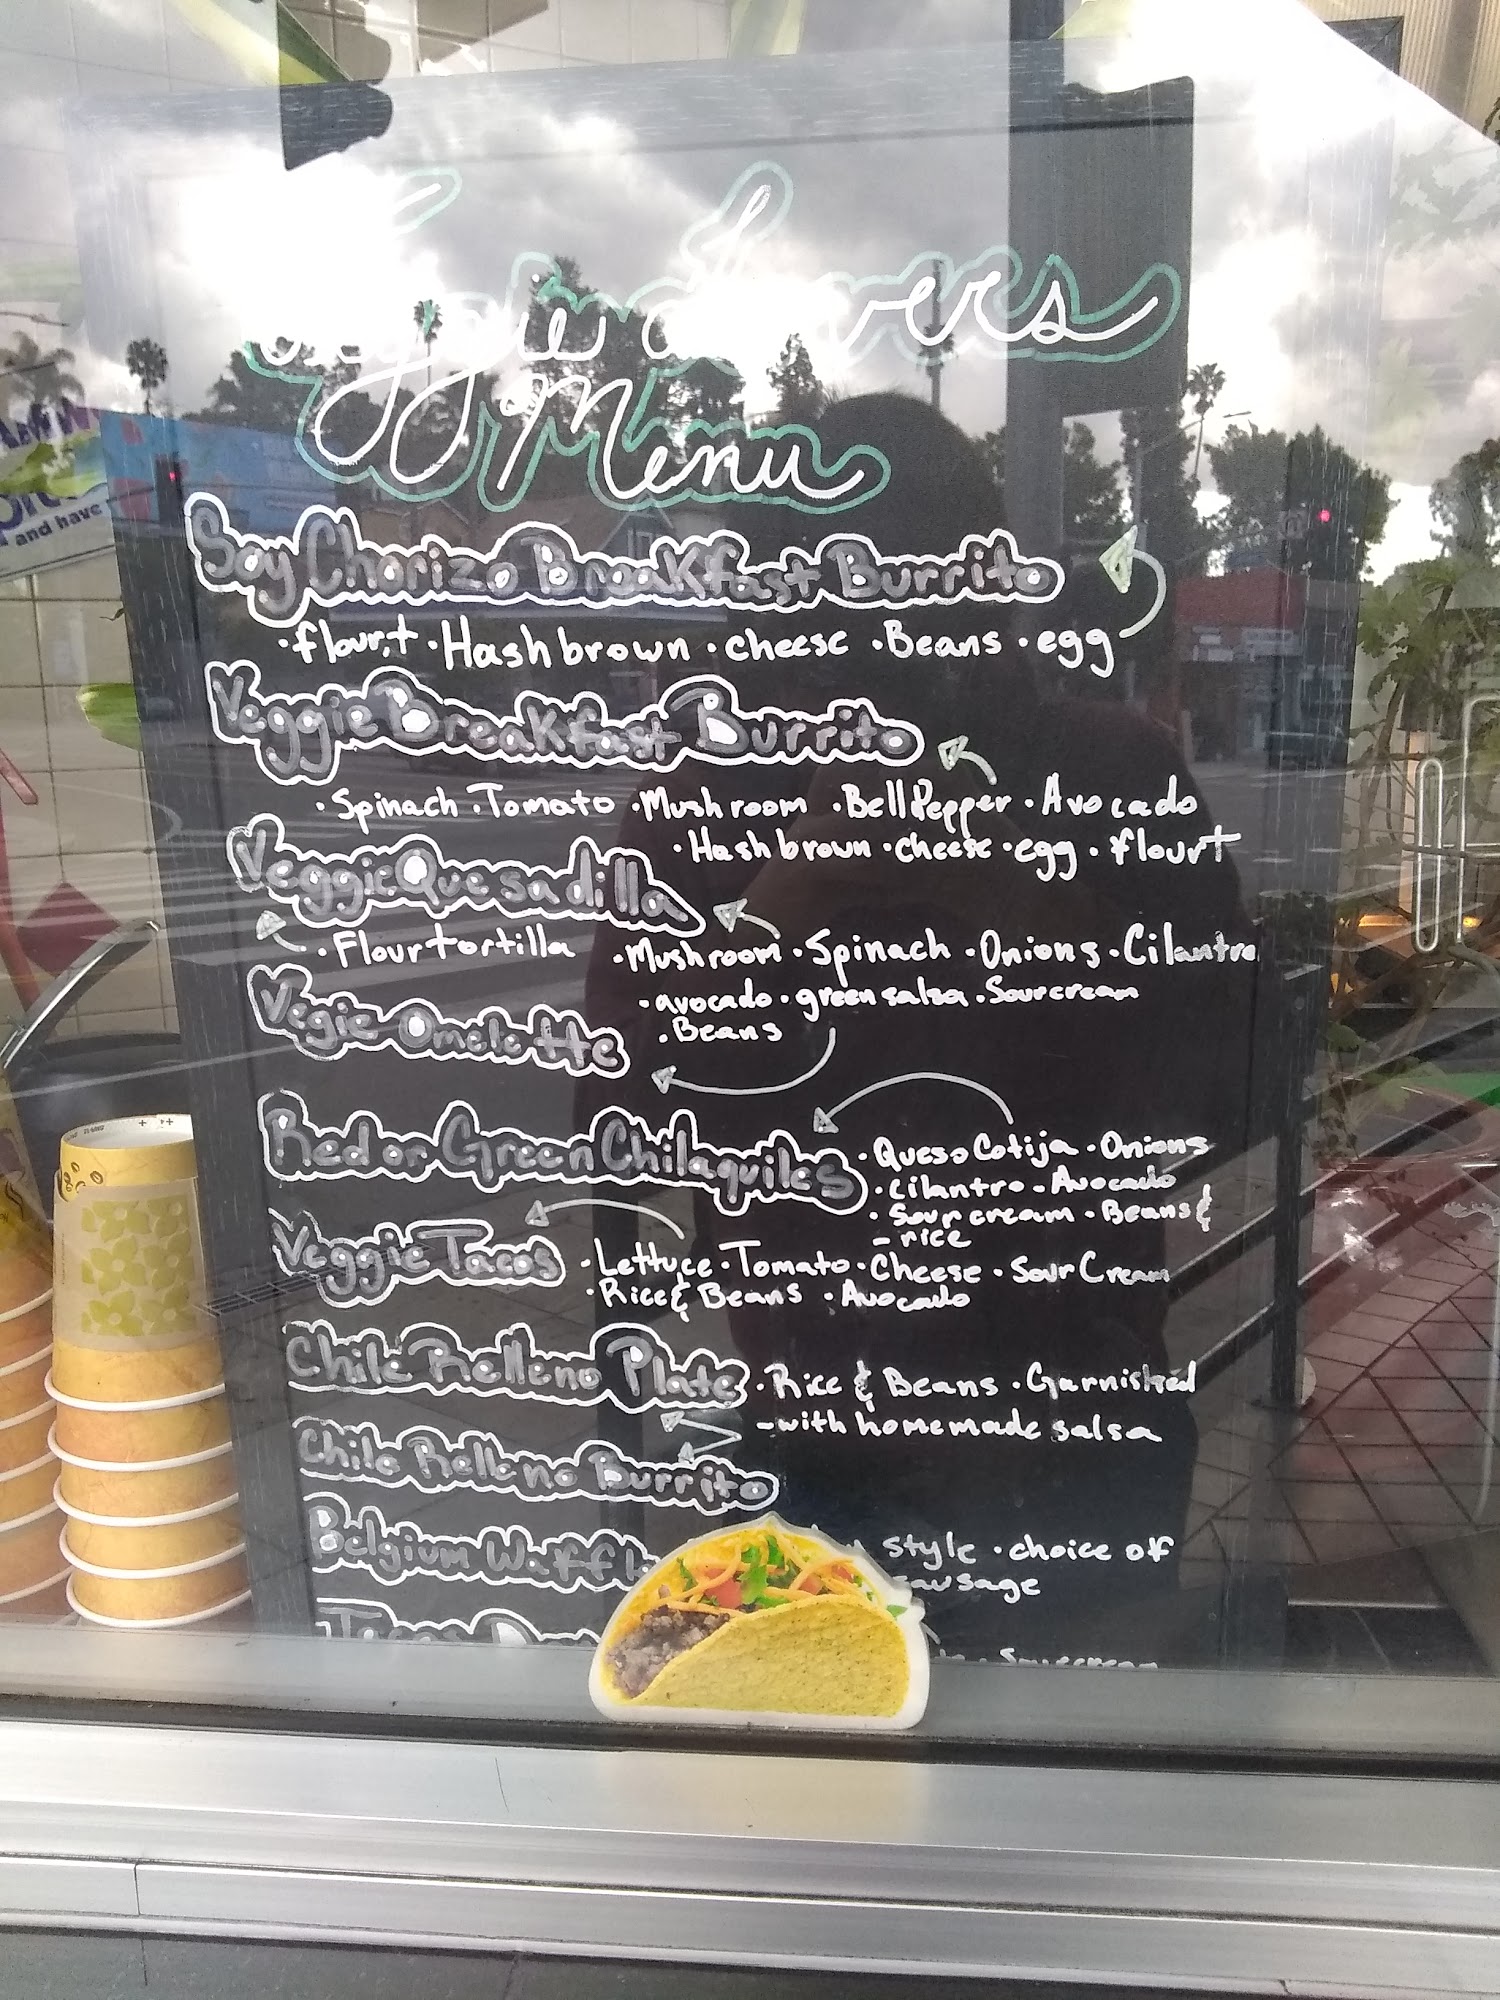 Veggie Lovers
Menu
Soy Chorizo Breakfast Burrito
·flour.t ·Hashbrown ·cheese ·Beans ·egg
Veggie Breakfast Burrito
·Spinach ·Tomato ·Mushroom ·Bell Pepper ·Avocado
·Hashbrown ·cheese ·egg ·flour t
Veggie Quesadilla
·Flour tortilla ·Mushroom ·Spinach ·Onions ·Cilantro
·avocado ·green salsa ·Sour cream
·Beans
Vegie Omelette
Red or Green Chilaquiles
·Queso Cotija ·Onions
·cilantro - Avocado
·Sour cream ·Beans &
- rice
Veggie Tacos ·Lettuce ·Tomato ·Cheese ·Sour Cream
·Rice & Beans ·Avocado
Chile Relleno Plate ·Rice & Beans ·Garnished
-with homemade salsa
Chile Relleno Burrito
Belgium Waffl style ·choice of
sausage
Tacos
Sourcream
and have